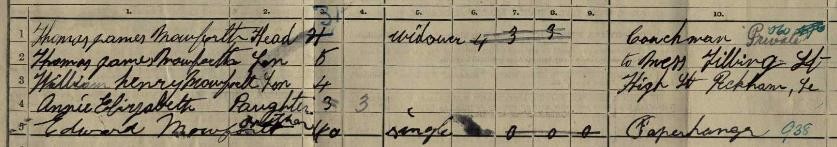 1. 5. 6. 7. 8. 9. 10.
1 Thomas James Mowforth Head Widower 4 3 3 Coachman Private 060
2 Thomas James Mowforth Son 5 to Mess Tilling Lt
3 William Henry Mowforth Son 4 High St Peckham, Se
4 Annie Elizabeth Daughter 3 3
5 Edward Mowforth Brother 40 Single 0 0 0 Paperhanger 938